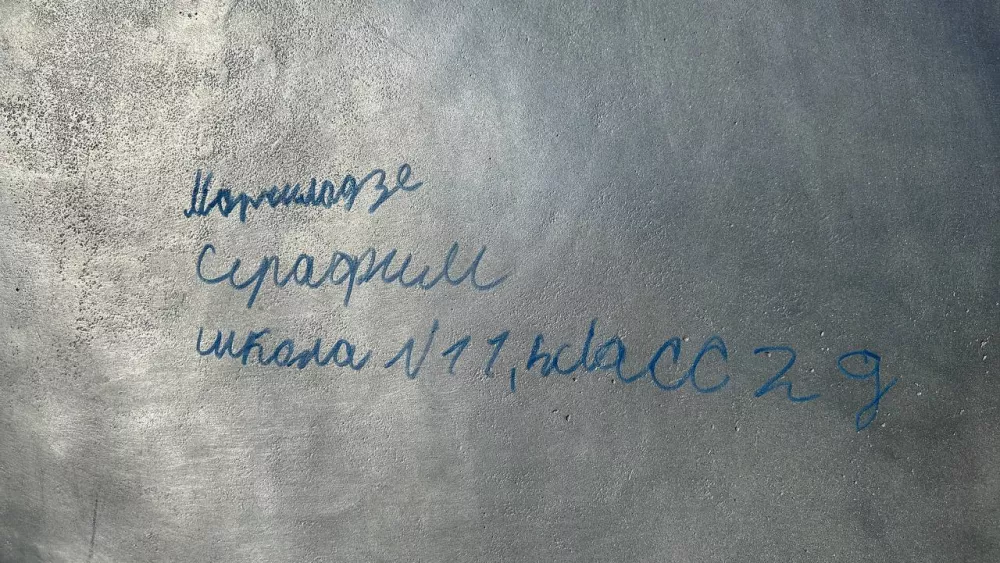 Маршиладзе
Серафим
школа N 11, класс 2 д